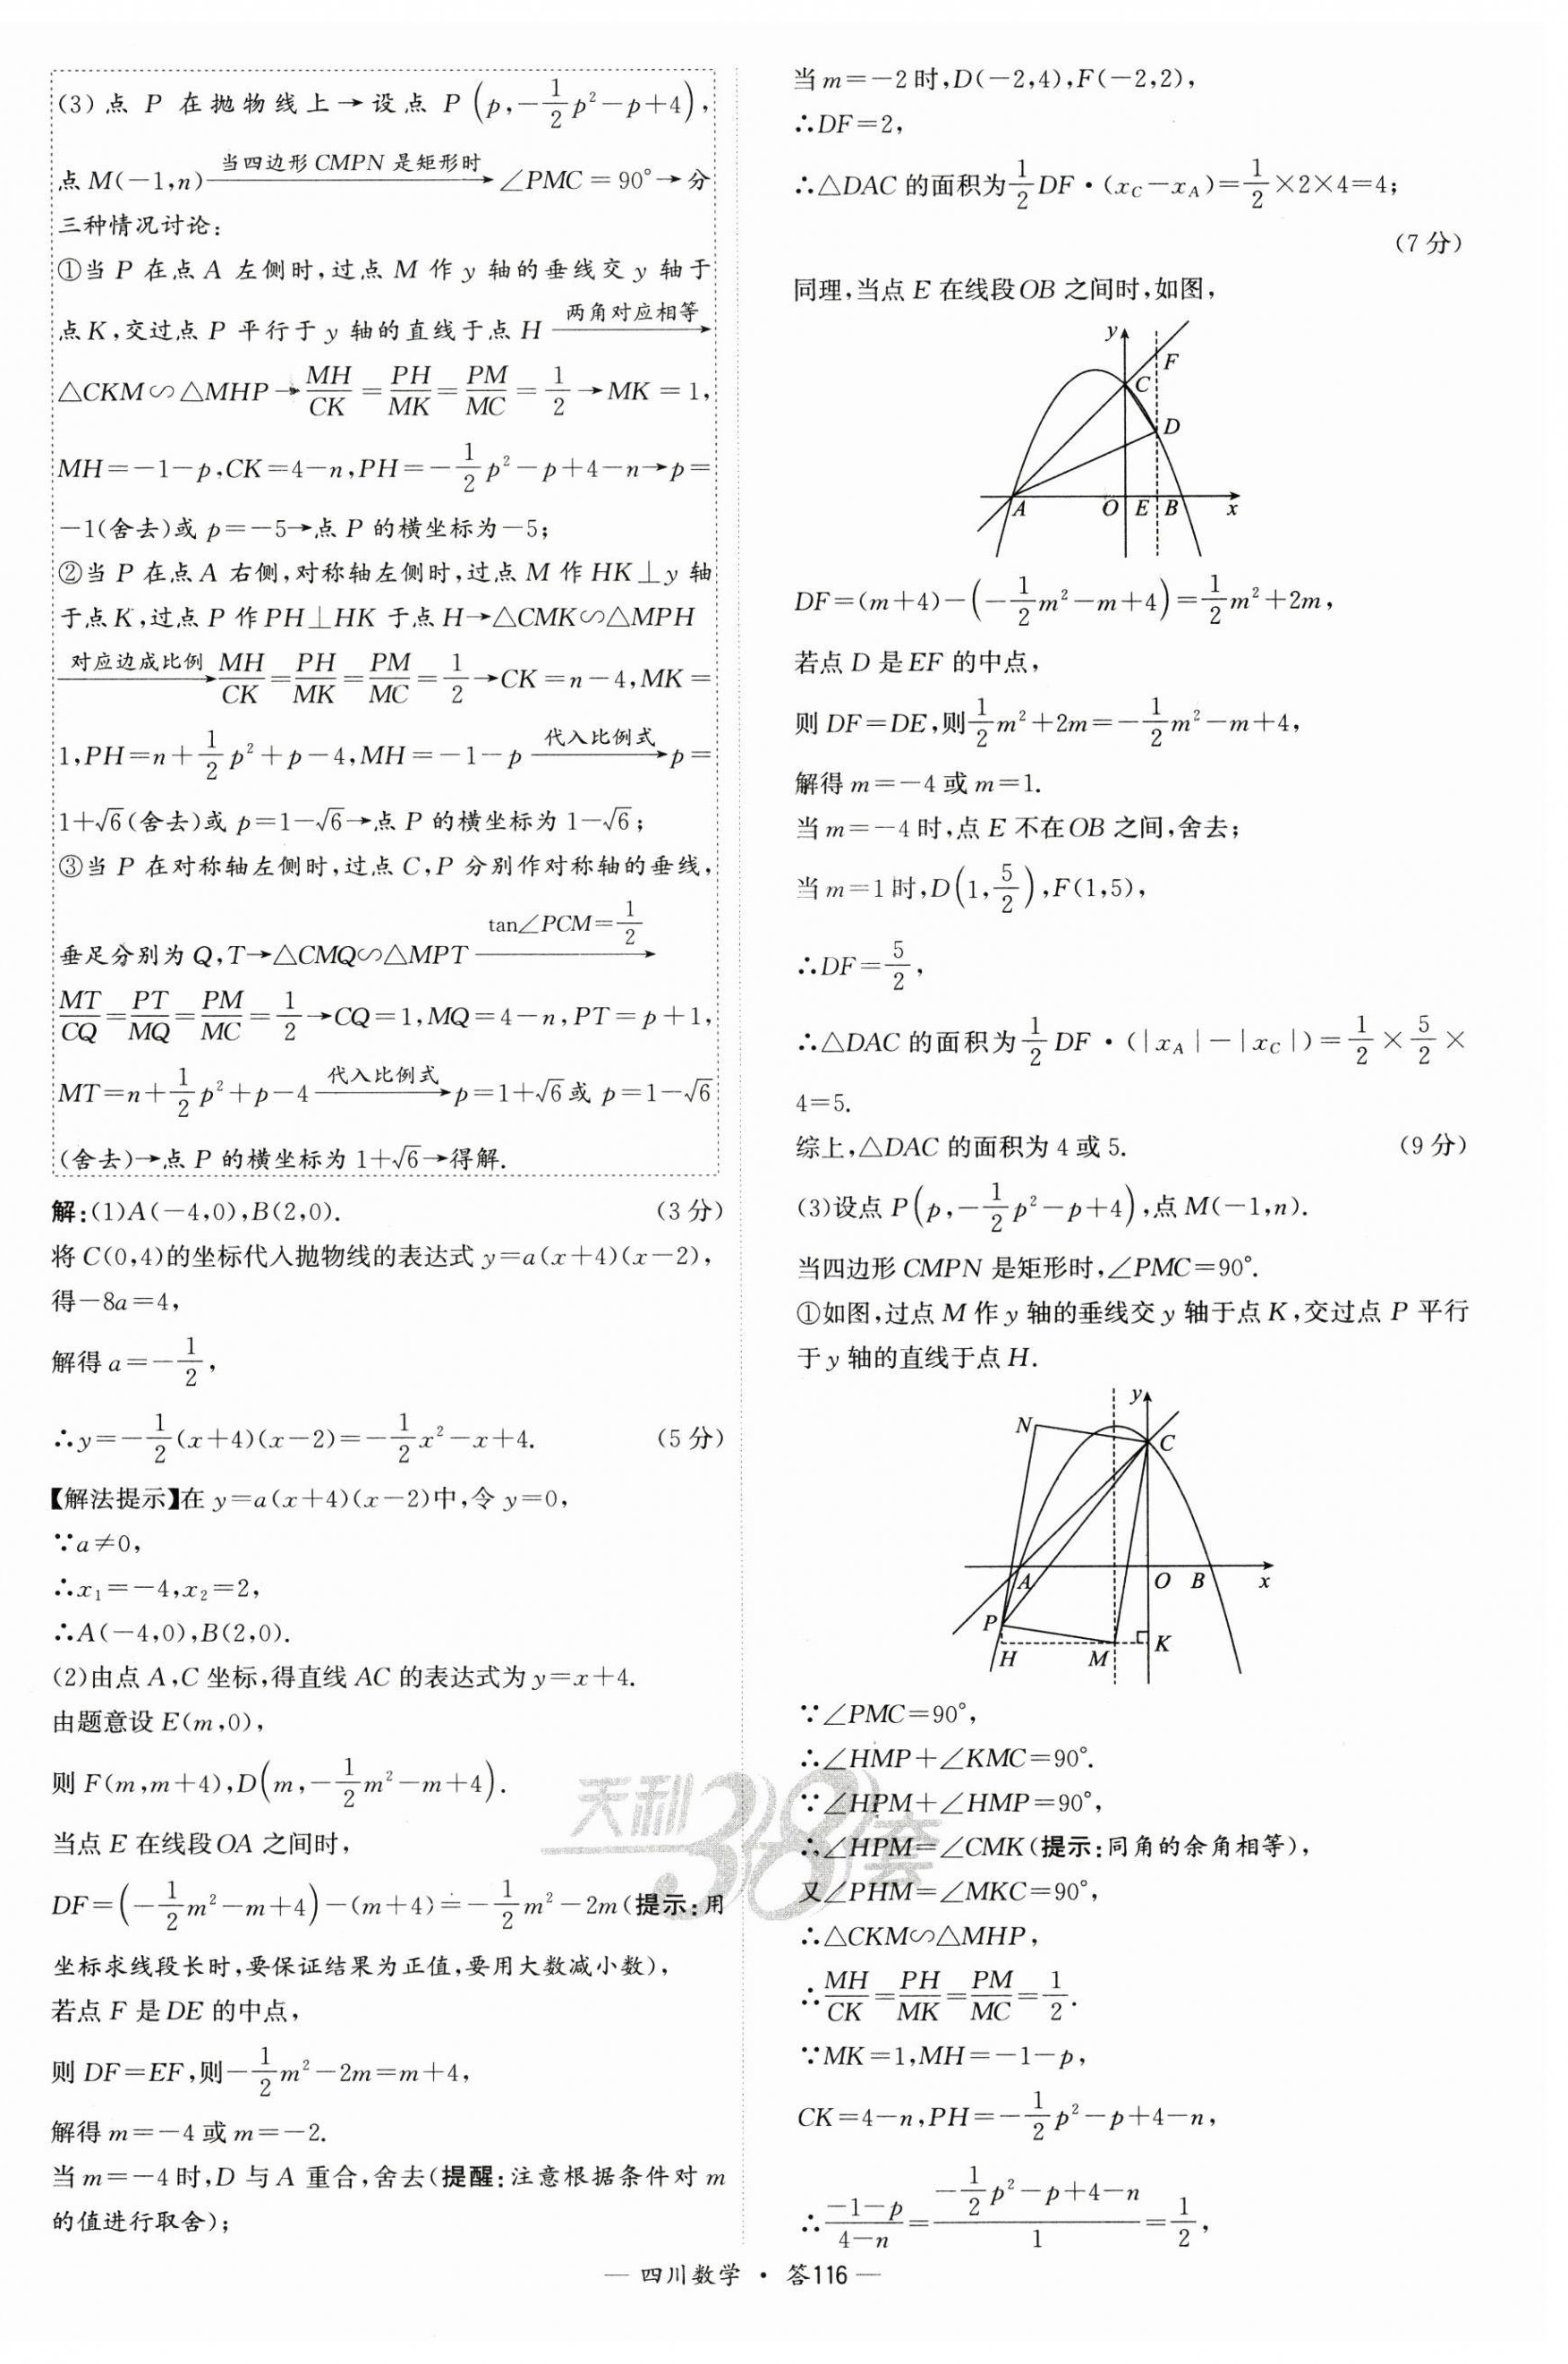 (3)点 P 在抛物线上→设点 P(p,-1/2p²-p+4),
点M(-1,n) 当四边形CMPN是矩形时→ ∠PMC=90°→分
三种情况讨论:
①当 P 在点 A 左侧时,过点 M 作 y 轴的垂线交 y 轴于
点K,交过点 P 平行于 y 轴的直线于点 H 两角对应相等→
△CKM∽△MHP→MH/CK=PH/MK=PM/MC=1/2→MK=1,
MH=-1-p,CK=4-n,PH=-1/2p²-p+4-n→p=
-1(舍去)或 p=-5→点 P 的横坐标为-5;
②当 P 在点 A 右侧,对称轴左侧时,过点 M 作 HK⊥y 轴
于点K,过点 P 作PH⊥HK 于点 H→△CMK∽△MPH
对应边成比例→MH/CK=PH/MK=PM/MC=1/2→CK=n-4,MK=
1,PH=n+1/2p²+p-4,MH=-1-p 代入比例式→p=
1+√6(舍去)或 p=1-√6→点 P 的横坐标为 1-√6;
③当 P 在对称轴左侧时,过点 C,P 分别作对称轴的垂线,
垂足分别为 Q,T→△CMQ∽△MPT tan∠PCM=1/2→
MT/CQ=PT/MQ=PM/MC=1/2→CQ=1,MQ=4-n,PT=p+1,
MT=n+1/2p²+p-4 代入比例式→p=1+√6或 p=1-√6
(舍去)→点 P 的横坐标为 1+√6→得解.
解:(1)A(-4,0),B(2,0). (3分)
将C(0,4)的坐标代入抛物线的表达式 y=a(x+4)(x-2),
得-8a=4,
解得 a=-1/2,
∴y=-1/2(x+4)(x-2)=-1/2x²-x+4. (5分)
【解法提示】在 y=a(x+4)(x-2)中,令 y=0,
∵a≠0,
∴x₁=-4,x₂=2,
∴A(-4,0),B(2,0).
(2)由点 A,C 坐标,得直线 AC 的表达式为 y=x+4.
由题意设 E(m,0),
则 F(m,m+4),D(m,-1/2m²-m+4).
当点 E 在线段OA 之间时,
DF=(-1/2m²-m+4)-(m+4)=-1/2m²-2m(提示:用
坐标求线段长时,要保证结果为正值,要用大数减小数),
若点 F 是DE 的中点,
则 DF=EF,则-1/2m²-2m=m+4,
解得 m=-4或m=-2.
当m=-4时,D 与A 重合,舍去(提醒:注意根据条件对 m
的值进行取舍);
当m=-2时,D(-2,4),F(-2,2),
∴DF=2,
∴△DAC 的面积为1/2DF·(x_C-x_A)=1/2×2×4=4;
(7分)
同理,当点 E 在线段OB 之间时,如图,
y
F
C
D
A O E B x
DF=(m+4)-(-1/2m²-m+4)=1/2m²+2m,
若点 D 是EF 的中点,
则 DF=DE,则1/2m²+2m=-1/2m²-m+4,
解得 m=-4或m=1.
当m=-4时,点 E 不在OB 之间,舍去;
当m=1时,D(1,5/2),F(1,5),
∴DF=5/2,
∴△DAC 的面积为1/2DF·(|x_A|-|x_C|)=1/2×5/2×
4=5.
综上,△DAC 的面积为4或5. (9分)
(3)设点 P(p,-1/2p²-p+4),点M(-1,n).
当四边形CMPN 是矩形时,∠PMC=90°.
①如图,过点 M 作 y 轴的垂线交 y 轴于点 K,交过点 P 平行
于 y 轴的直线于点 H.
y
N
C
A O B x
P
H M K
∵∠PMC=90°,
∴∠HMP+∠KMC=90°.
∵∠HPM+∠HMP=90°,
∴∠HPM=∠CMK(提示:同角的余角相等),
又∠PHM=∠MKC=90°,
∴△CKM∽△MHP,
∴MH/CK=PH/MK=PM/MC=1/2.
∵MK=1,MH=-1-p,
CK=4-n,PH=-1/2p²-p+4-n,
∴(-1-p)/(4-n)=(-1/2p²-p+4-n)/1=1/2,
天利38套
— 四川数学 · 答116 —